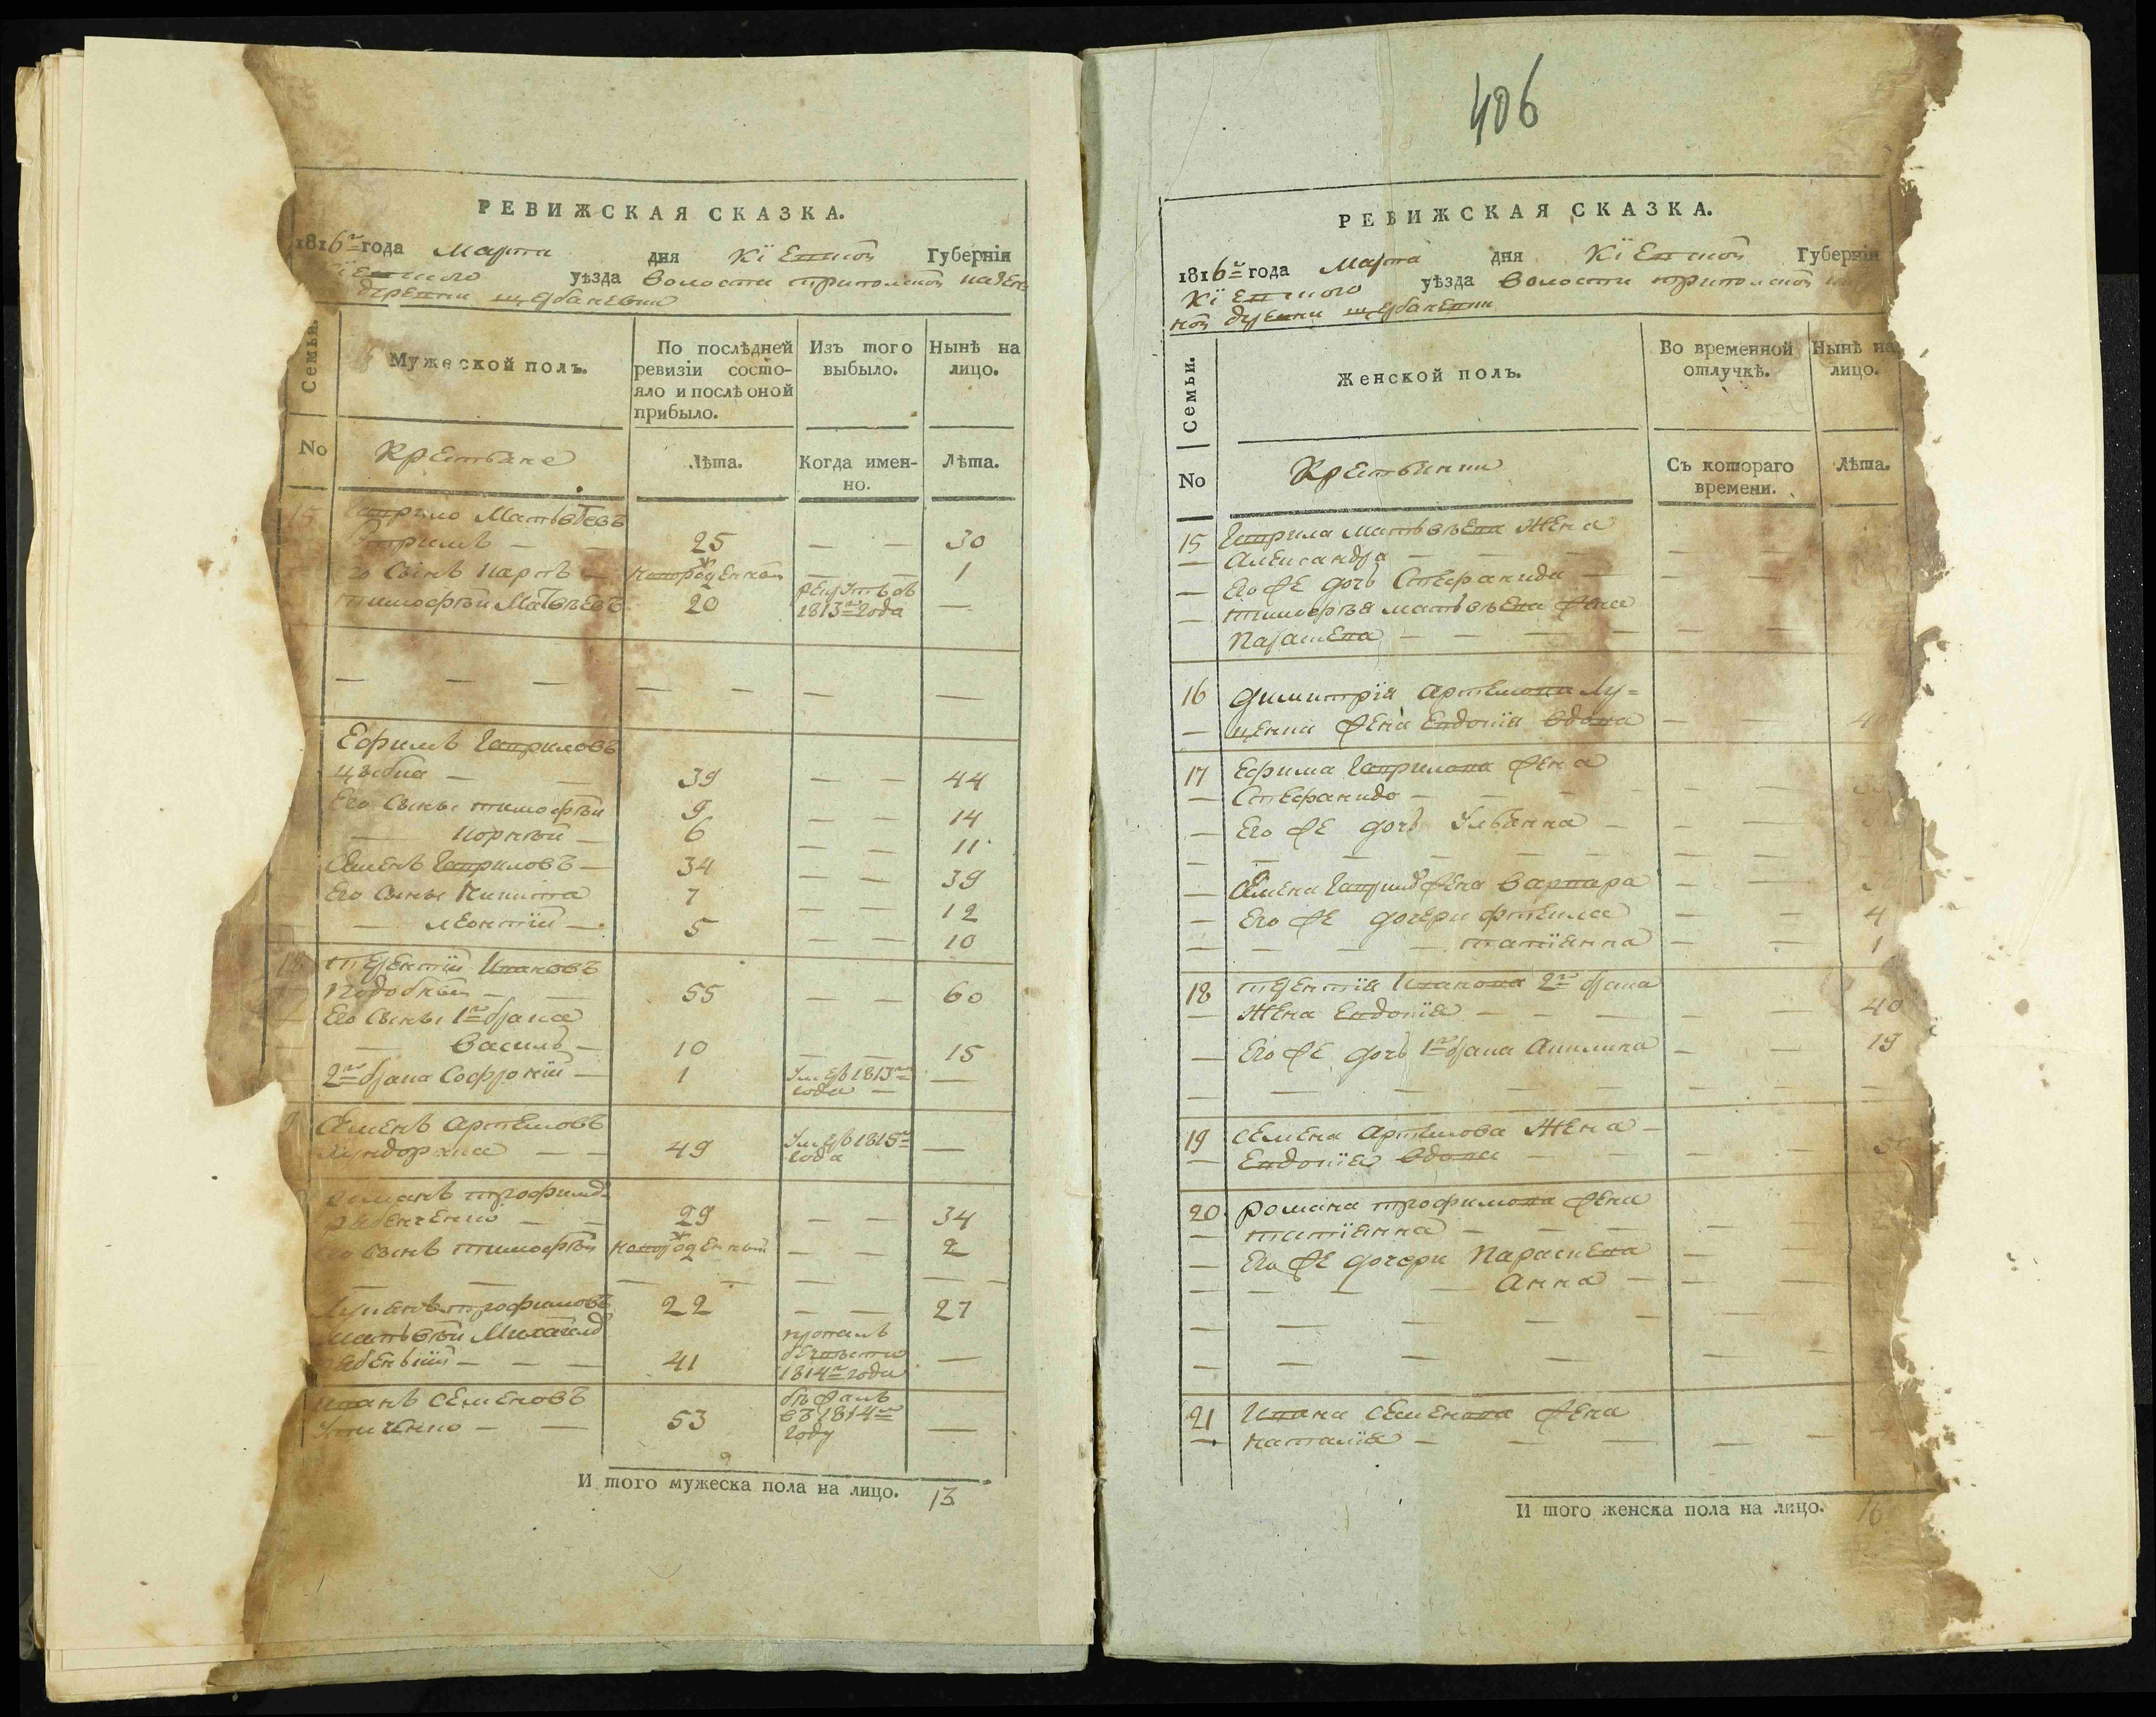 РЕВИЖСКАЯ СКАЗКА.
1816го года Марта дня Кіевской Губерніи
Кіевского уѣзда Волости трипольской казен
деревни щербаневки
Семьи.
Мужеской полъ.
По послѣдней ревизіи состояло и послѣ оной прибыло.
Изъ того выбыло.
Нынѣ на лицо.
No
Крестьяне
Лѣта.
Когда именно.
Лѣта.
15 Гаврило Матвѣевъ
25 — — 30
го Сынъ Карпъ — новорожденный — — 1
тимофѣй Матвѣевъ 20 рекрутъ въ 1813го года —
— — — — — — —
Ефимъ Гавриловъ
39 — — 44
Его Сыны тимофѣй 9 — — 14
— Корнѣй — 6 — — 11
Семенъ Гавриловъ — 34 — — 39
Его Сыны Никита 7 — — 12
— леонтій — 5 — — 10
18 терентій Ивановъ
55 — — 60
Его Сыны 1го брака
— Василь — 10 — — 15
2го брака Софроній — 1 умеръ 1813го года — —
9 Семенъ Артемовъ
— — 49 умеръ 1815го года —
романъ трофимовъ
— — 29 — — 34
его Сынъ тимофѣй новорожденный — — 2
— — — — — — —
Лукьянъ трофимовъ 22 — — 27
Матвѣй Михайловъ
— — — 41 пропалъ безвѣсти 1814го года —
иванъ Семеновъ
— — 53 бѣжалъ въ 1814го году —
И того мужеска пола на лицо. 13
406
РЕВИЖСКАЯ СКАЗКА.
1816го года Марта дня Кіевской Губерніи
Кіевского уѣзда Волости трипольской
ной деревни щербаневки
Семьи.
Женской полъ.
Во временной отлучкѣ.
Нынѣ на лицо.
No
Крестьянки
Съ котораго времени.
Лѣта.
15 Гаврила Матвѣева Жена
— Александра — — — — —
— Его же дочь Стефанида — — —
— тимофѣя матвѣева жена
— Параскева — — — — — —
16 димитрія артемова Лу=
— ценка жена Евдокія вдова — — 4
17 Ефима Гаврилова жена
— Стефанида — — — — — —
— Его же дочь Ульянна — — —
— — — — — — — —
— Семена Гаврилова жена Варвара — —
— Его же дочери фтемья — — 4
— — — — татіянна — — 1
18 терентія Иванова 2го брака
— Жена Евдокія — — — — — 40
— Его же дочь 1го брака Акилина — — 19
— — — — — — — —
19 Семена Артемова Жена —
— Евдокія вдова — — — —
20 романа трофимова жена
— татіянна — — — — —
— Его же дочери Параскева — —
— — — — Анна — — —
— — — — — — —
— — — — — — —
21 Ивана Семенова жена
— наталія — — — — —
И того женска пола на лицо. 16